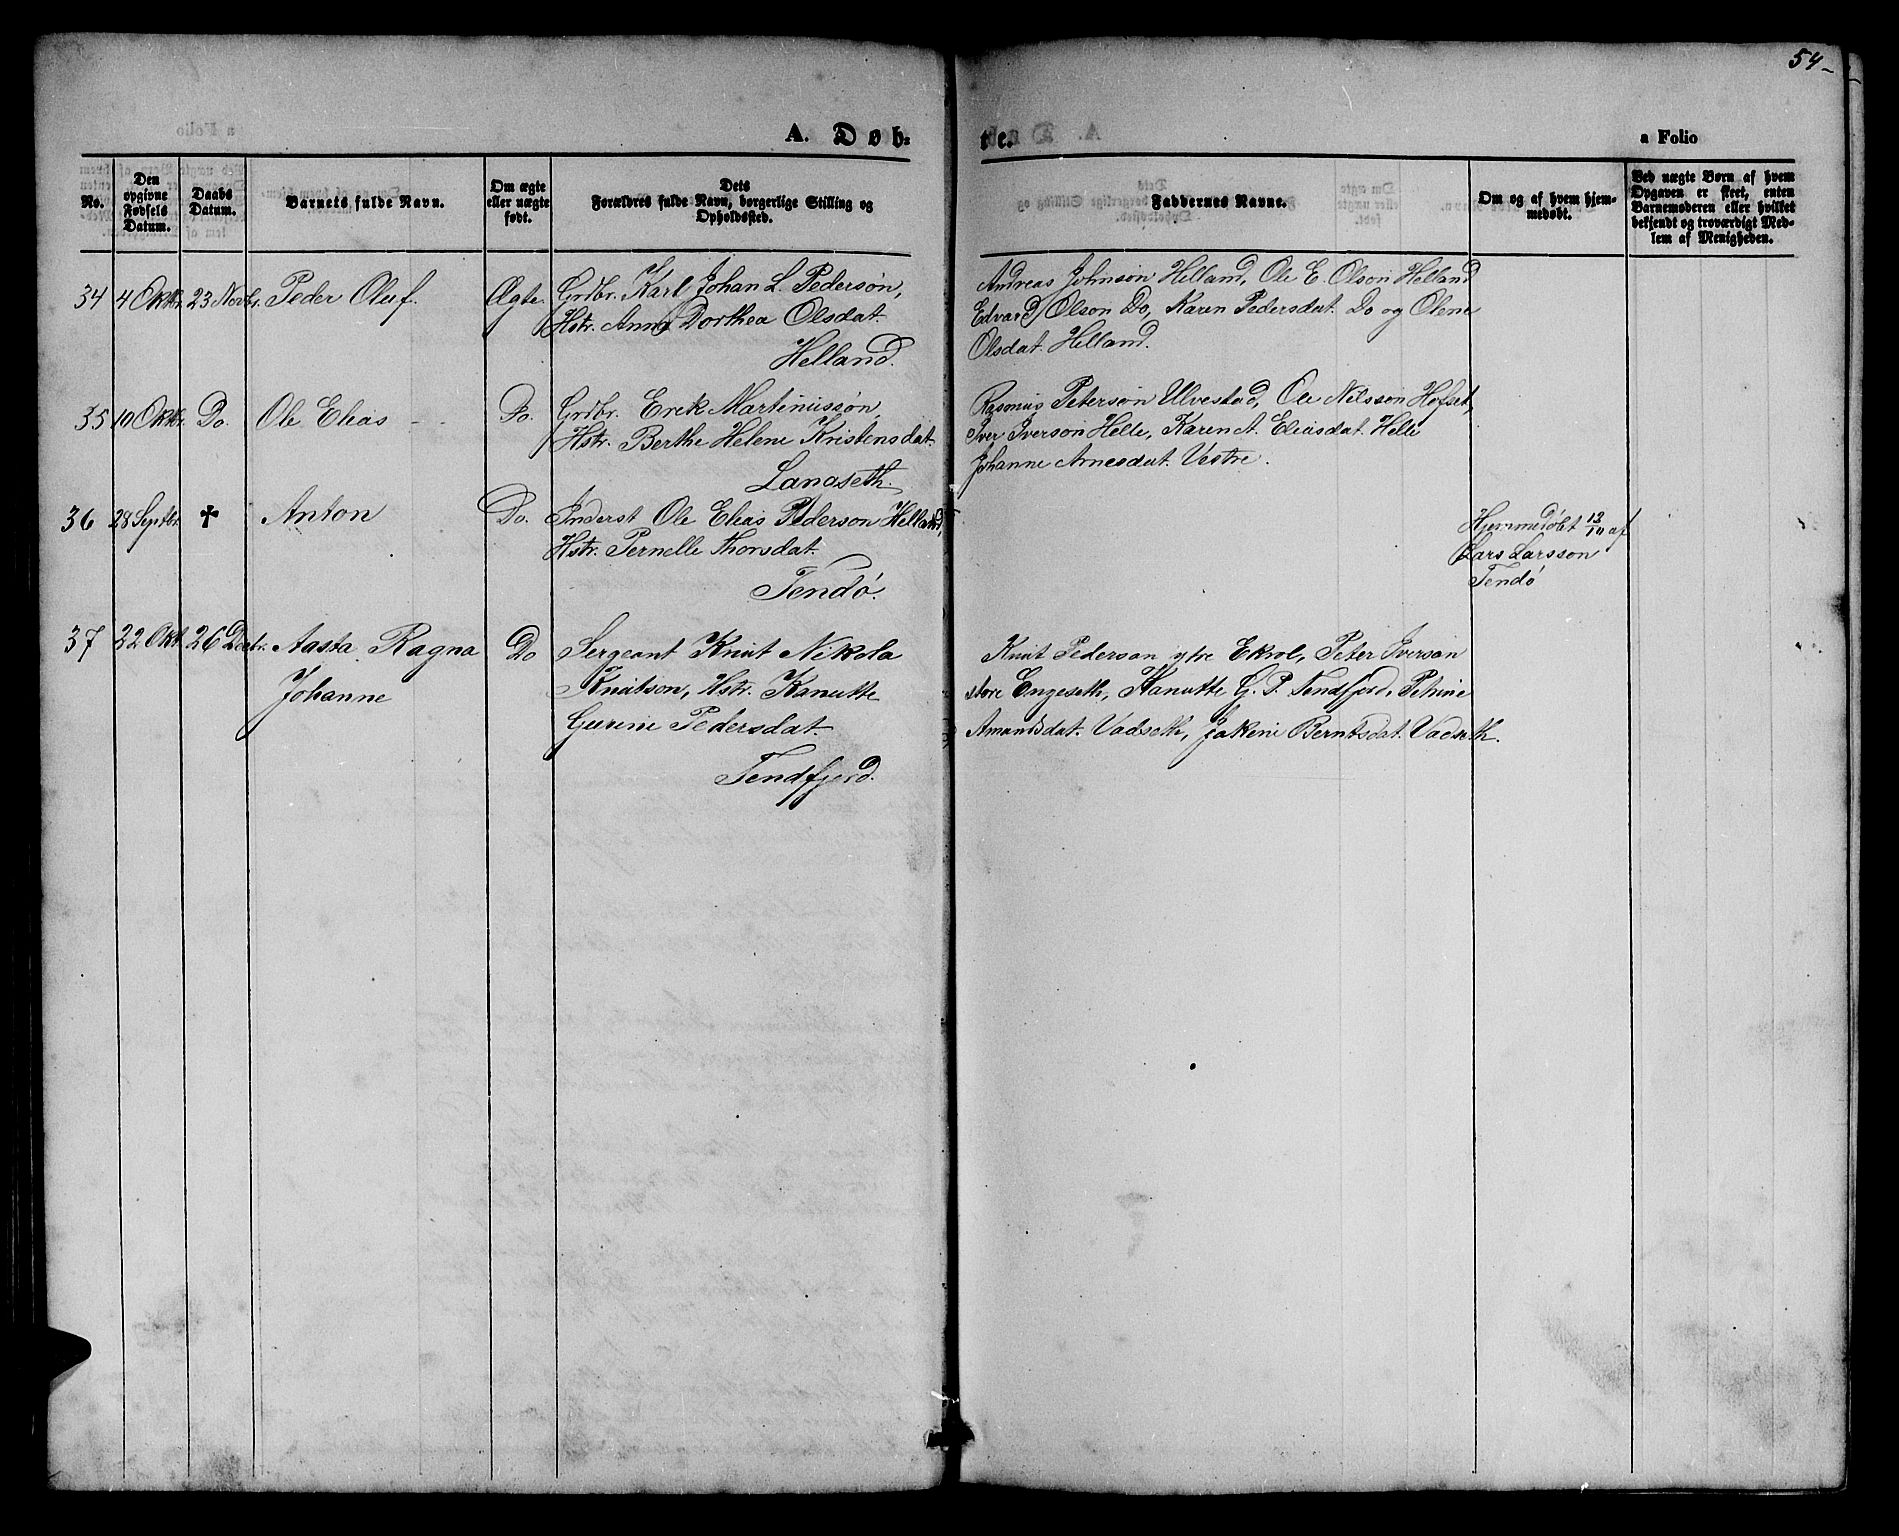 54
A. Døb-
te.
a Folio
No.
Den opgivne Fødsels Datum.
Daabs Datum.
Barnets fulde Navn.
Om ægte eller uægte født.
Dets Forældres fulde Navn, borgerlige Stilling og Opholdssted.
Faddernes Navne.
Om og af hvem hjem-
medøbt.
Ved uægte Børn af hvem
Opgaven er skeet, enten
Barnemoderen eller hvilket
bekjendt og troværdigt Med-
lem af Menigheden.
34 4 Oktbr. 23 Novbr. Peder Oluf. Ægte. Grdbr. Karl Johan L. Pederson,
Hstr. Anna Dorthea Olsdat.
Helland.
Andreas Johnson Helland, Ole E. Olson Helland
Edvard Olson Do, Karen Pedersdat. Do og Olene
Olsdat. Helland.
35 10 Oktbr. Do. Ole Elias Do. Grdbr. Erek Martinusson,
Hstr. Berthe Helene Kristensdat.
Langseth.
Rasmus Peterson Ulvestad, Ole Nilsson Hofset,
Iver Iverson Helle, Karen A. Eliasdat. Helle
Johanne Arnesdat. Vestre.
36 28 Septbr. † Anton Do. Inderst Ole Elias Pederson Helland,
Hstr. Pernelle Thorsdat.
Tendø.
Hjemmedøbt 12/10 af
Lars Larsson
Tendø
37 22 Okt. 26 Decbr. Aasta Ragna
Johanne
Do Sergeant Knut Nikola
Knutson, Hstr. Kanutte
Gurine Pedersdat.
Tendfjord.
Knut Pederson ytre Ekrol, Peter Iverson
store Engeseth, Hanutte G. P. Tendfjord, Petrine
Amandsdat. Vadseth, Jakine Berntsdat. Vadseth.